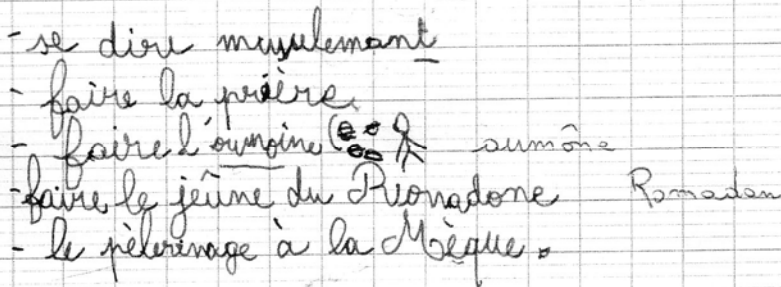 - se dire musulemant
- faire la prière
- faire l'oumoine ( aumône
- faire le jeûne du Rionadone Romadan
- le pèlerinage à la Mèque.